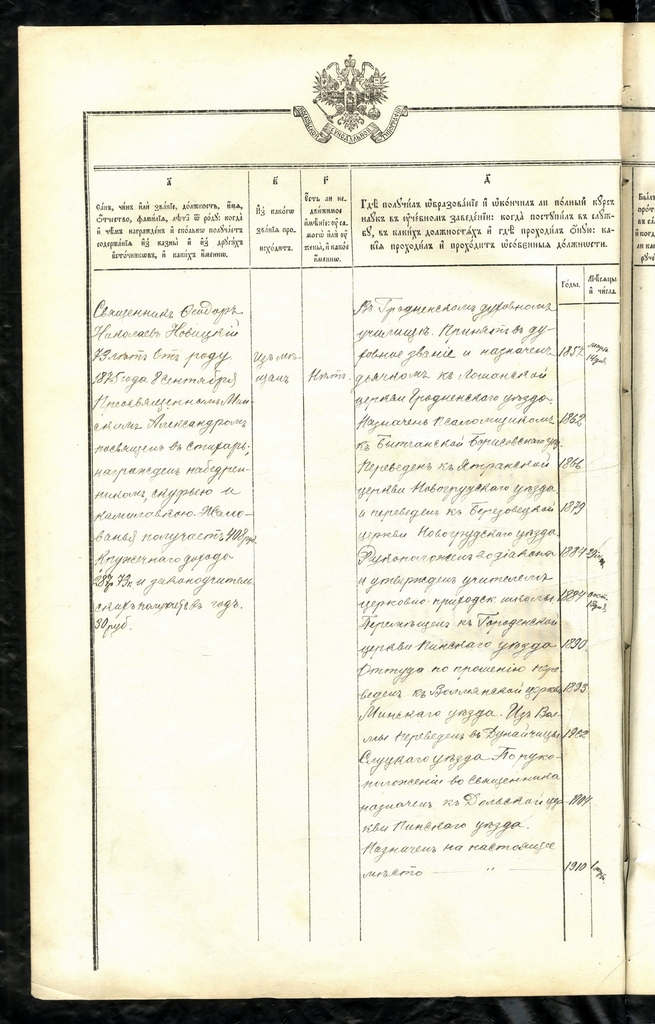 МОСКОВСКОЙ СѴНОДАЛЬНОЙ ТИПОГРАФІИ
а҃
Санъ, чинъ или званіе, должность, имя,
отчество, фамилія, лѣта ѿ роду: когда
и чѣмъ награжденъ и сколько получаетъ
содержанія изъ казны и изъ другихъ
источниковъ, и какихъ именно.
в҃
Изъ какого
званія про-
исходитъ.
г҃
Есть ли не-
движимое
имѣніе: оу са-
мого или оу
жены, и какое
именно.
д҃
Гдѣ получилъ ѡбразованіе и ѡкончилъ ли полный курсъ
наукъ въ оучебномъ заведеніи: когда поступилъ въ служ-
бу, въ какихъ должностяхъ и гдѣ проходилъ оную: ка-
кія проходилъ и проходитъ ѡсобенныя должности.
Годы.
Мѣсяцы
и числа.
Священникъ Ѳеодоръ
Николаевъ Новицкій
73 лѣтъ отъ роду
1875 года 8 сентября
Преосвященнымъ Мин-
скимъ Александромъ
посвященъ въ стихарь,
награжденъ набедрен-
никомъ, скуфьею и
камилавкою. Жало-
ванья получаетъ 408 руб.
Кружечнаго дохода
73 к. и законоучитель-
скихъ получаетъ въ годъ.
30 руб.
Изъ мѣ-
щанъ
Нѣтъ.
Въ Гродненскомъ духовномъ
училищѣ. Принятъ въ ду-
ховное званіе и назначенъ 1857
дьячкомъ къ Лошанской
церкви Гродненскаго уѣзда.
Назначенъ псаломщикомъ 1862
къ Бытчанской Борисовскаго
Переведенъ къ Ятранской 1866
церкви Новогрудскаго уѣзда
и переведенъ къ Березовецкой 1879
церкви Новогрудскаго уѣзда.
Рукоположенъ во діакона 1884
и утвержденъ учителемъ
церковно-приходск. школы. 1884 окт.
Перемѣщенъ къ Городенской
церкви Пинскаго уѣзда 1890
Оттуда по прошенію пере-
веденъ къ Волмянской церкви 1893
Минскаго уѣзда. Изъ Вол-
мы переведенъ въ Дунайчицы 1902
Слуцкаго уѣзда. По руко-
положеніи во священника
назначенъ къ Дольской цер- 1904
кви Пинскаго уѣзда.
Назначенъ на настоящее
мѣсто — „ — 1910